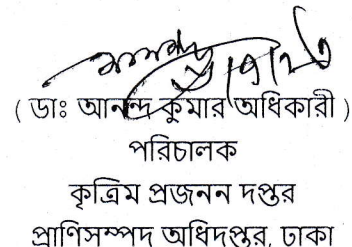 ( ডাঃ আনন্দ কুমার অধিকারী )
পরিচালক
কৃত্রিম প্রজনন দপ্তর
প্রাণিসম্পদ অধিদপ্তর, ঢাকা